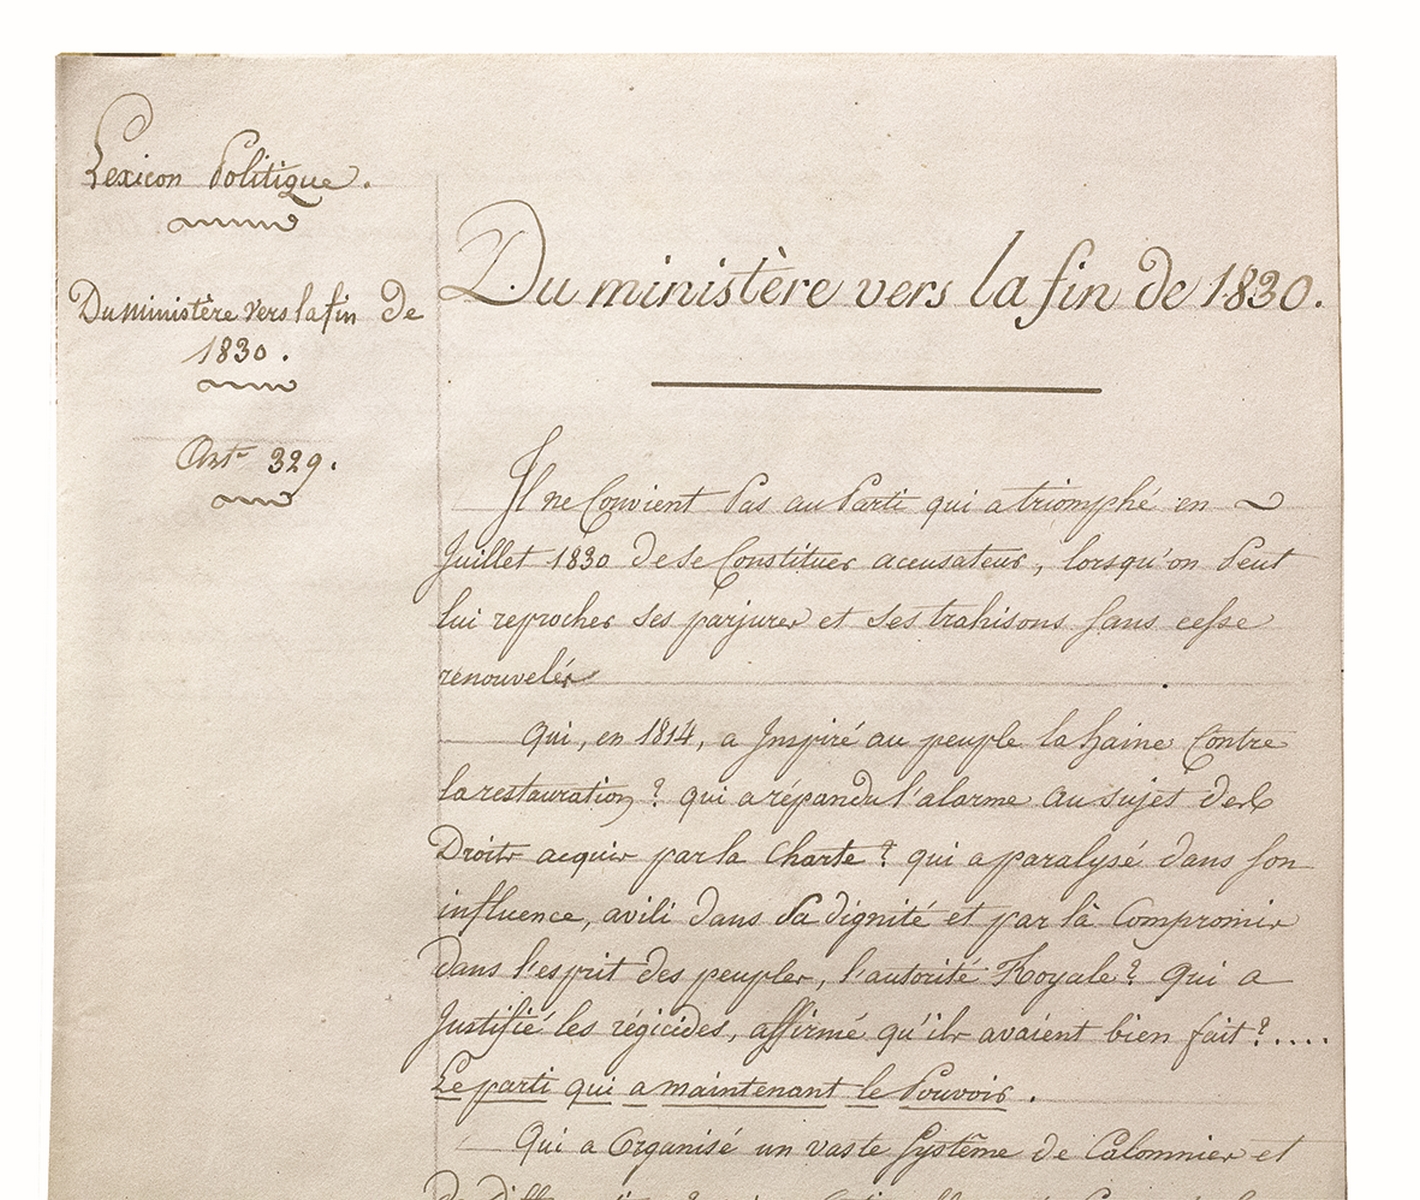 Lexicon Politique.
Du ministère vers la fin de
1830.
Art. 329.
Du ministère vers la fin de 1830.
Il ne Convient Pas au Parti qui a triomphé en
Juillet 1830 de se Constituer accusateur, lorsqu'on Peut
lui reprocher ses parjures et ses trahisons sans cesse
renouvelés
Qui, en 1814, a Inspiré au peuple la haine Contre
la restauration ? qui a répandu l'alarme au sujet des
Droits acquis par la Charte ? qui a paralysé dans son
influence, avili dans Sa dignité et par là Compromis
dans l'esprit des peuples, l'autorité Royale ? Qui a
Justifié les régicides, affirmé qu'ils avaient bien fait ?....
Le parti qui a maintenant le Pouvoir.
Qui a Organisé un vaste Système de Calomnies et